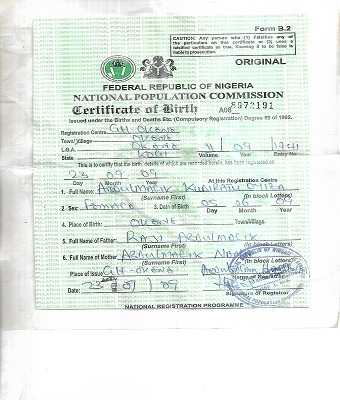 Form B.2
CAUTION: Any person who (1) Falsifies any of the particulars on this certificate or (2) uses a falsified certificate as true, Knowing it to be false is liable to prosecution.
ORIGINAL
FEDERAL REPUBLIC OF NIGERIA
NATIONAL POPULATION COMMISSION
Certificate of Birth
Issued under the Births and Deaths Etc. (Compulsory Registration) Degree 69 of 1992.
Registration Centre GH OKENE
Town/Village OKENE
L.G.A OKENE
State KOGI Volume 11 / 09 Year
This is to certify that the birth, details of which are recorded herein, has been registered on
23 09 09
Day Month Year At this Registration Centre
1. Full Name: ABDULMALIK
(Surname First) (In block Letters)
2. Sex: FEMALE 3. Date of Birth 05 09
Day Month Year
4. Place of Birth: OKENE Town/Village
5. Full Name of Father: RAJI ABDULMALIK
(Surname First) (In block Letters)
6. Full Name of Mother: ABDULMALIK
(Surname First) (In block Letters)
Place of Issue GH OKENE
Name of Registrar
Date: 23 /09
Signature of Registrar
NATIONAL REGISTRATION PROGRAMME